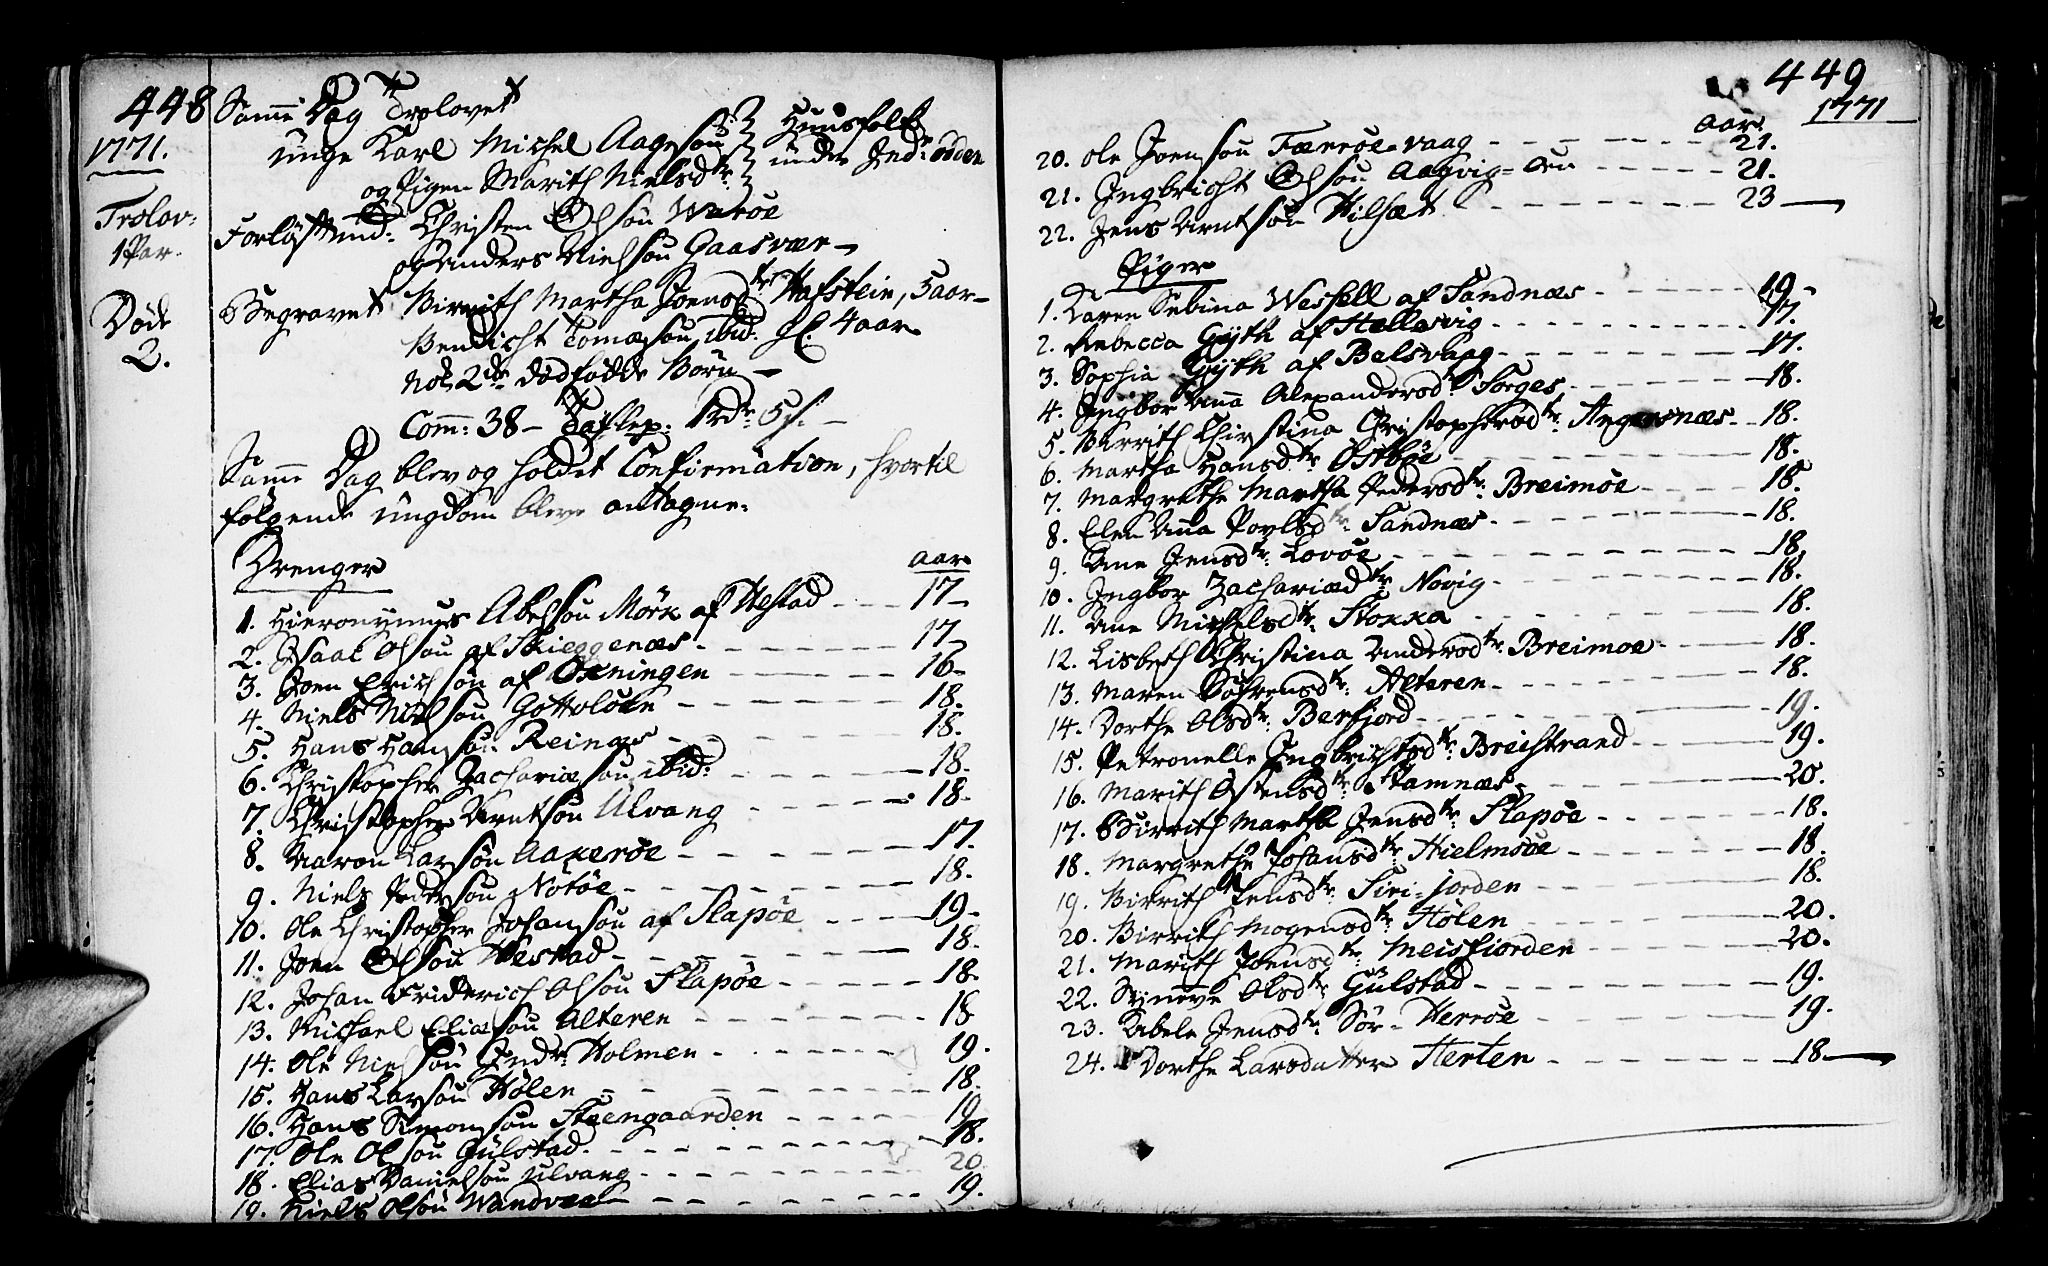 448
1771.
Trolov:
1 Par.
Døde
2.
Samme Dag Trolovet
unge Karl Michel Aagesøn Huusfolk
og Pigen Marith Nielsdtr: under Ind: Ødden
Forløftmd: Christen Olsøn Warøe
og Anders Nielsøn Gaasvær
Begravet Birrith Martha Joensdtr Hafstein, 3 aar
Bendicht Tomæsøn ibid: gl: 4 aar
Nok 2de dødfødde Børn
Comm: 38 – Taflep: 1 rdr: 5 s:
Samme Dag blev og holdet Confirmation, hvortil
følgende ungdom bleve antagne.
Drenger aar
1. Hieronymus Abelsøn Mörk af Westad 17
2. Isaac Olsøn af Skieggenæs 17
3. Joen Erichsøn af Oxningen 16
4. Niels Nielsøn Gottoløen 18.
5. Hans Hansøn Reinæs 18.
6. Christopher Zachariæsøn ibid: 18.
7. Christopher Arntsøn Ulvang 18.
8. Aaron Larsøn Aakerøe 17.
9. Niels Pedersøn Nötöe 18.
10. Ole Christopher Johansøn af Slapøe 19
11. Joen Olsøn Westad 18.
12. Johan Friderich Olsøn Slapøe 18
13. Michael Eliæsøn Alteren 18
14. Ole Nielsøn Indr: Holmen 19.
15. Hans Larsøn Hölen 18.
16. Hans Simonsøn Steengaarden 19
17. Ole Olsøn Gülstad 18.
18. Elias Danielsøn Ulvang 20
19. Niels Olsøn Wandvee 19.
449
1771
aar
20. Ole Joensøn Færrøe-vaag 21.
21. Ingbricht Olsøn Aagvig=Øen 21.
22. Jens Arntsøn Hilsæt 23
Piger
1. Karen Sebina Wessell af Sandnæs 19
2. Rebecca Gyth af Hellesvig 17.
3. Sophia Gyth af Belsvaag 17.
4. Ingbor Anna Alexandersdtr Torges 18.
5. Birrith Christina Christophersdtr: Angersnæs 18.
6. Martha Hansdtr: Östbøe 18.
7. Margrethe Martha Pedersdtr: Breimöe 18.
8. Elen Anna Povlsdtr: Sandnæs 18.
9. Ane Jensdtr: Lovöe 18.
10. Ingbor Zachariædtr Novig 18.
11. Ane Michelsdtr: Stokka 18.
12. Lisbeth Christina Andersdtr: Breimoe 18.
13. Maren Söfrensdtr: Alteren 18.
14. Dorthe Olsdtr: Berfjord 19.
15. Petronelle Ingbrichtsdtr: Breistrand 19.
16. Marith Östensdtr: Stamnæs 20.
17. Birrith Martha Jensdtr: Slapøe 18.
18. Margrethe Johansdtr: Hielmsöe 18.
19. Birrith Jensdtr: Siri-jorden 18.
20. Birrith Mogensdtr: Hölen 20.
21. Marith Joensdtr: Meisfiorden 20.
22. Synneve Olsdtr: Gülstad 19.
23. Abele Jensdtr: Sör-Herröe 19.
24. Dorthe Larsdatter Herten 18